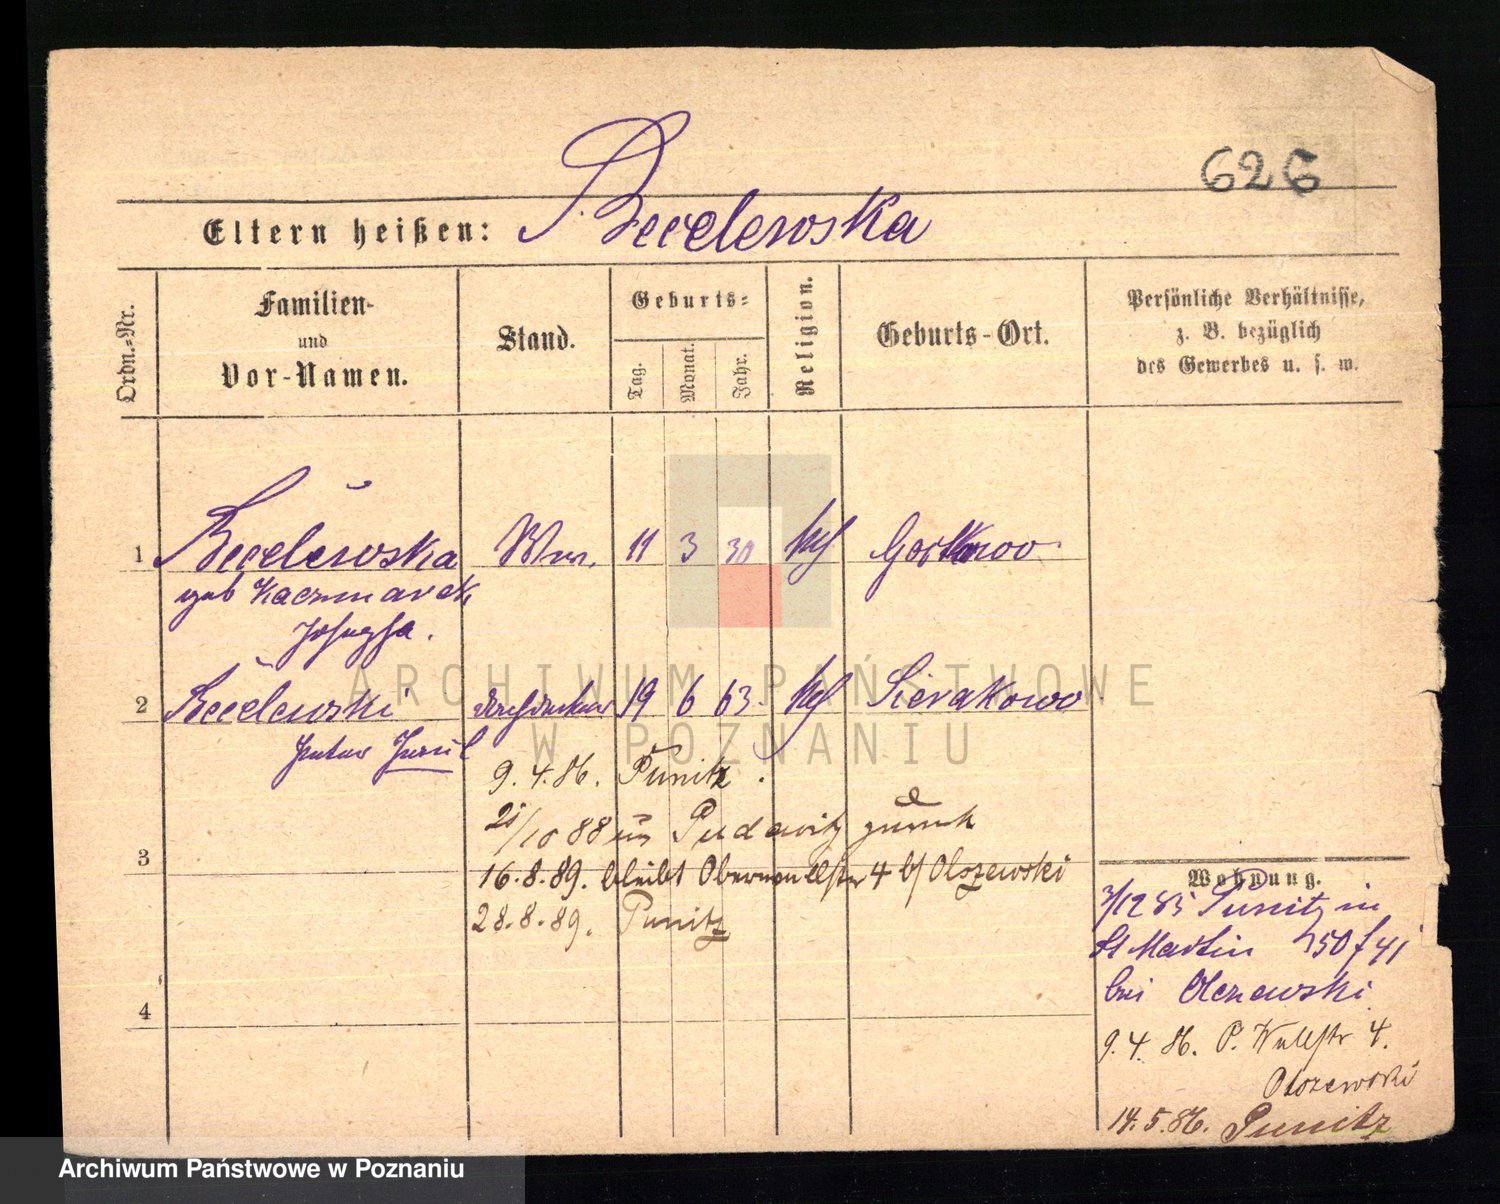 626
Eltern heißen: Becelewska
Ordn.-Nr.
Familien-
und
Vor-Namen.
Stand.
Geburts-
Tag.
Monat.
Jahr.
Religion.
Geburts-Ort.
Persönliche Verhältnisse,
z. B. bezüglich
des Gewerbes u. s. w.
1 Becelewska Ww. 11 3 30 kth
geb Kaczmarek
Josepha.
2 Becelewski 19 6 63. kth Sierakowo
9. 4. 86. Punitz.
21/10 88 Pudewitz zurück
3
16.8.89. bleibt 4 b/ Olszewski
28.8.89. Punitz
4
Wohnung.
3/12 85 Punitz in
St Martin
bei Olczewski
9. 4. 86. P. Wallstr 4.
Olszewski
14. 5. 86. Punitz
ARCHIWUM PAŃSTWOWE
W POZNANIU
Archiwum Państwowe w Poznaniu